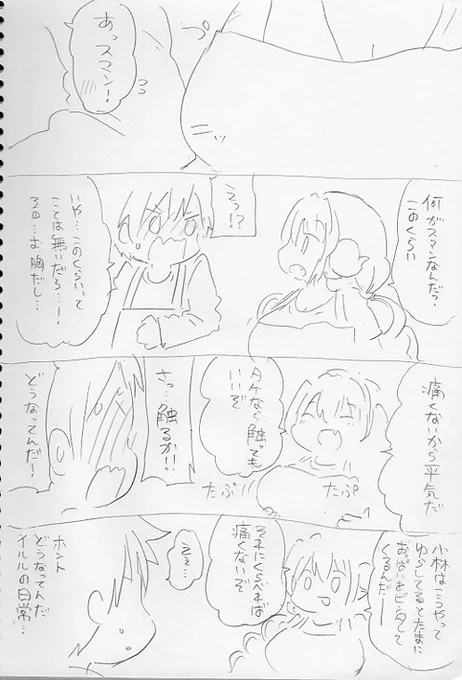 あっスマン!
何がスマンなんだ?
このくらい
えっ!?
いや…このくらいって
ことは無いだろ…!
お胸だし…
痛くないから平気だ
タケなら触っても
いいぞ
たぷ
たぷ
さっ…触るか!!
どうなってんだ!
小林はこうやって
ゆらしてるとたまに
おっぱいをビンタして
くるんだー
それにくらべれば
痛くないぞ
ええ…
ホント
どうなってんだ
イルルの日常…